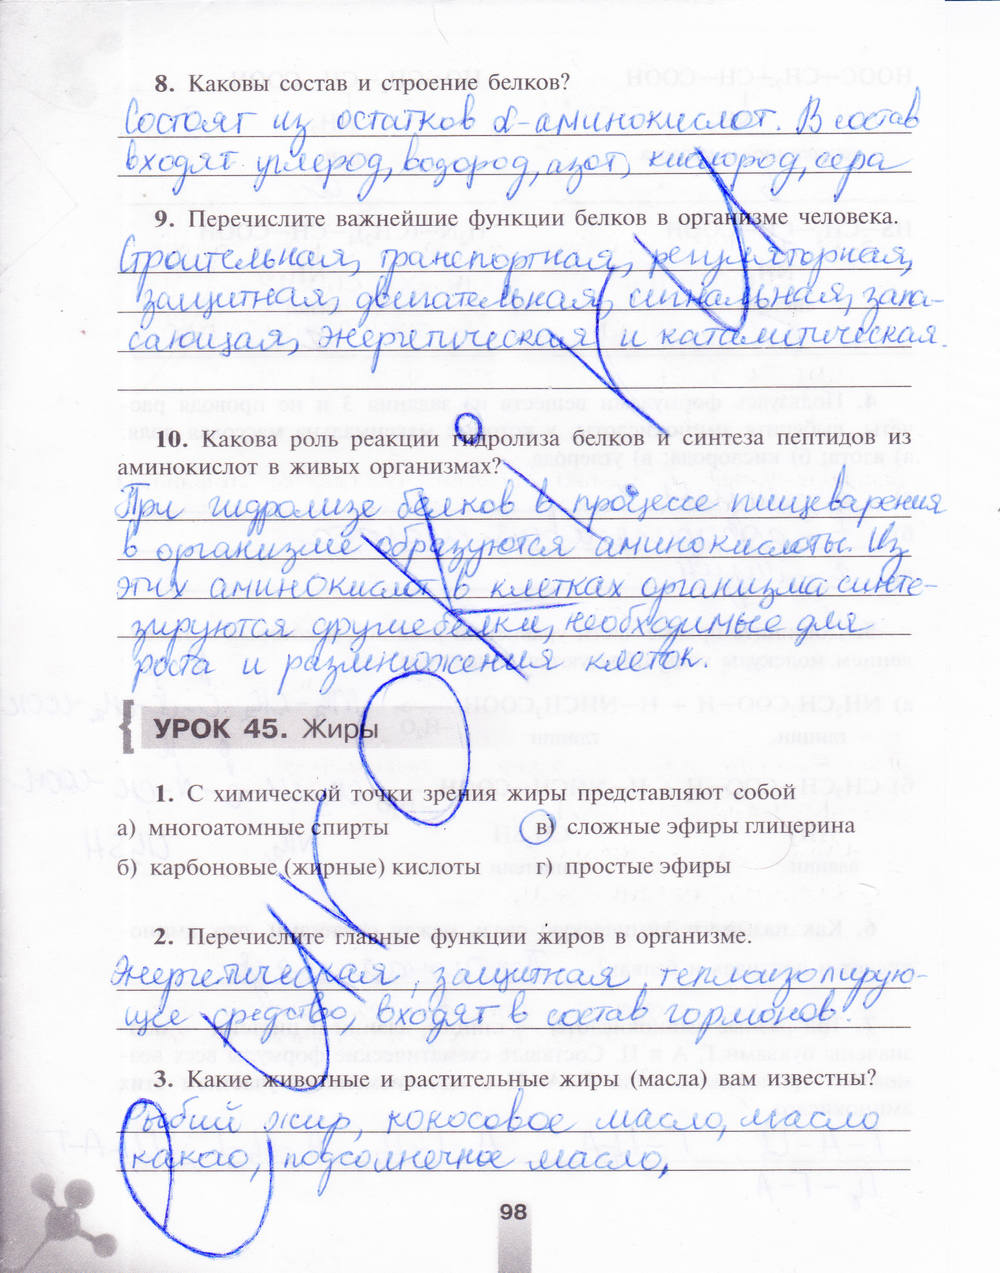 8. Каковы состав и строение белков?
Состоят из остатков α-аминокислот. В состав
входят углерод, водород, азот, кислород, сера
9. Перечислите важнейшие функции белков в организме человека.
Строительная, транспортная, регуляторная,
защитная, двигательная, сигнальная, запа-
сающая, энергетическая и каталитическая.
10. Какова роль реакции гидролиза белков и синтеза пептидов из
аминокислот в живых организмах?
При гидролизе белков в процессе пищеварения
в организме образуются аминокислоты. Из
этих аминокислот в клетках организма синте-
зируются другие белки, необходимые для
роста и размножения клеток.
УРОК 45. Жиры
1. С химической точки зрения жиры представляют собой
а) многоатомные спирты
в) сложные эфиры глицерина
б) карбоновые (жирные) кислоты
г) простые эфиры
2. Перечислите главные функции жиров в организме.
Энергетическая, защитная, теплоизолирую-
щее средство, входят в состав гормонов.
3. Какие животные и растительные жиры (масла) вам известны?
Рыбий жир, кокосовое масло, масло
какао, подсолнечное масло,
98